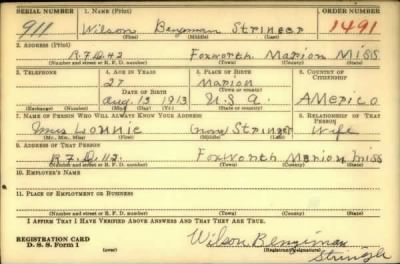 SERIAL NUMBER 1. NAME (Print) ORDER NUMBER
911 Wilson Bengman Stringer 1491
(First) (Middle) (Last)
2. ADDRESS (Print)
R.F.D. #2 Foxworth Marion Miss
(Number and street or R. F. D. number) (Town) (County) (State)
3. TELEPHONE 4. AGE IN YEARS 5. PLACE OF BIRTH 6. COUNTRY OF CITIZENSHIP
27 Marion
DATE OF BIRTH (Town or county)
Aug 13 1913 U.S.A. America
(Exchange) (Number) (Mo.) (Day) (Yr.) (State or country)
7. NAME OF PERSON WHO WILL ALWAYS KNOW YOUR ADDRESS 8. RELATIONSHIP OF THAT PERSON
Mrs Lonnie Stringer Wife
(Mr., Mrs., Miss) (First) (Middle) (Last)
9. ADDRESS OF THAT PERSON
Foxworth Marion Miss
(Number and street or R. F. D. number) (Town) (County) (State)
10. EMPLOYER'S NAME
11. PLACE OF EMPLOYMENT OR BUSINESS
(Number and street or R. F. D. number) (Town) (County) (State)
I AFFIRM THAT I HAVE VERIFIED ABOVE ANSWERS AND THAT THEY ARE TRUE.
REGISTRATION CARD
D. S. S. Form 1 (over) Wilson Bengiman
(Registrant's signature)